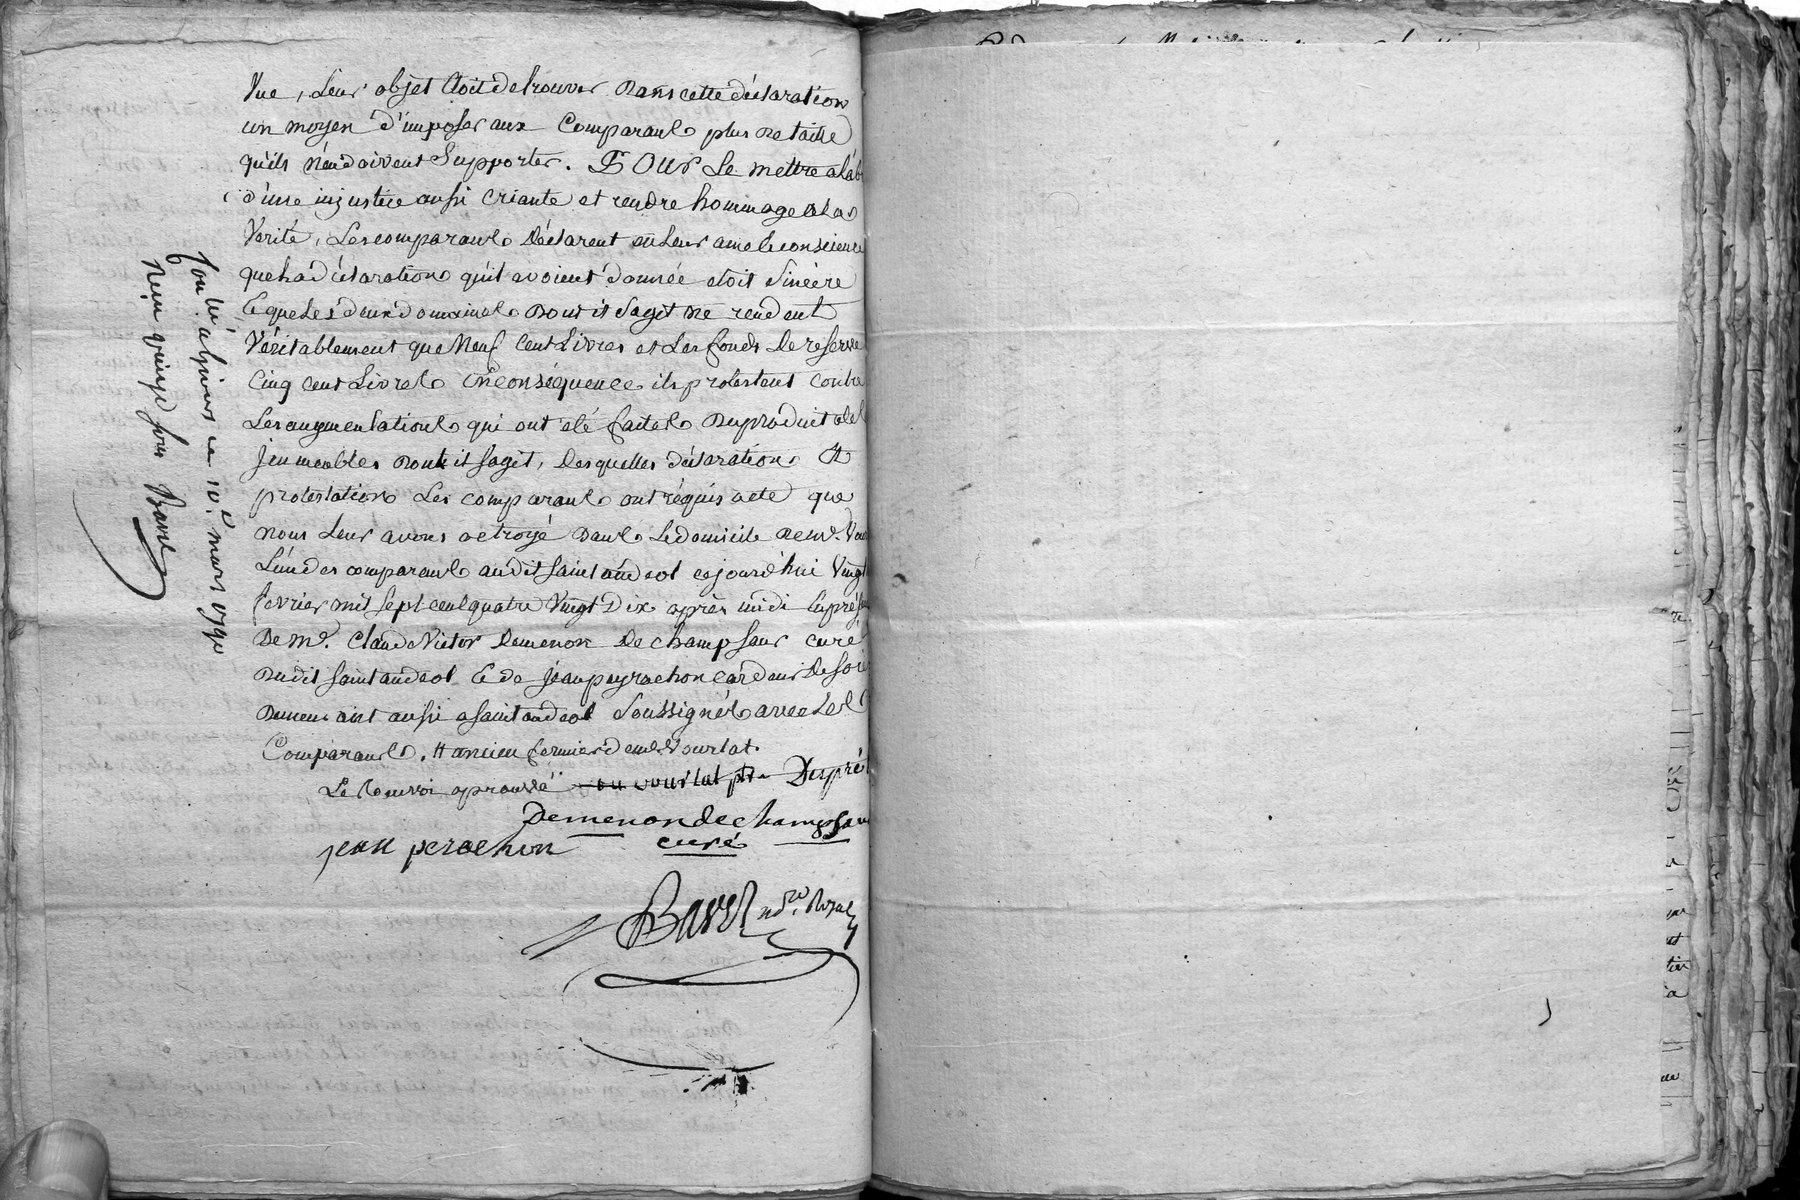 vue, Leur objet étoit de trouver Dans cette déclaration
un moyen d'imposer aux Comparants plus de taille
qu'ils n'en doivent supporter. POUR Se mettre a l'ab
d'une injustice aussi criante et rendre hommage a la
Verité, Les comparants Déclarent en Leur ame & conscience
que La déclaration qu'il avoient donnée étoit Sincère
& que Les deux domaines Dont il s'agit ne rendent
Véritablement que Neuf Cent Livres et Les fonds De reserve
Cinq cent Livres En conséquence ils protestent contre
Les augmentations qui ont été faites Du produit de
immeubles Dont il sagit, Desquelles déclaration Et
protestation Les comparants ont réquis acte que
nous Leur avons octroyé Dans Le domicile De mr. Vour
L'un des comparants audit saint andeol cejourd'hui Vingt
fevrier mil sept cent quatre Vingt Dix après midi En prése
De mr. Claude Victor Demenon De champsaur curé
Dudit saint andeol & de jean peyrachon cardeur De soie
Demeurant aussi a saint andeol Soussignés avec Les
Comparants. # ancien fermier de mr Vourlat
Le Renvoi aprouvé Vourlat Després
Demenon de champsaur
curé
jean perachon
Bavel nore. Royal
Con lé a privas ce 10e. mars 1790
Reçu quinze sous Bavel